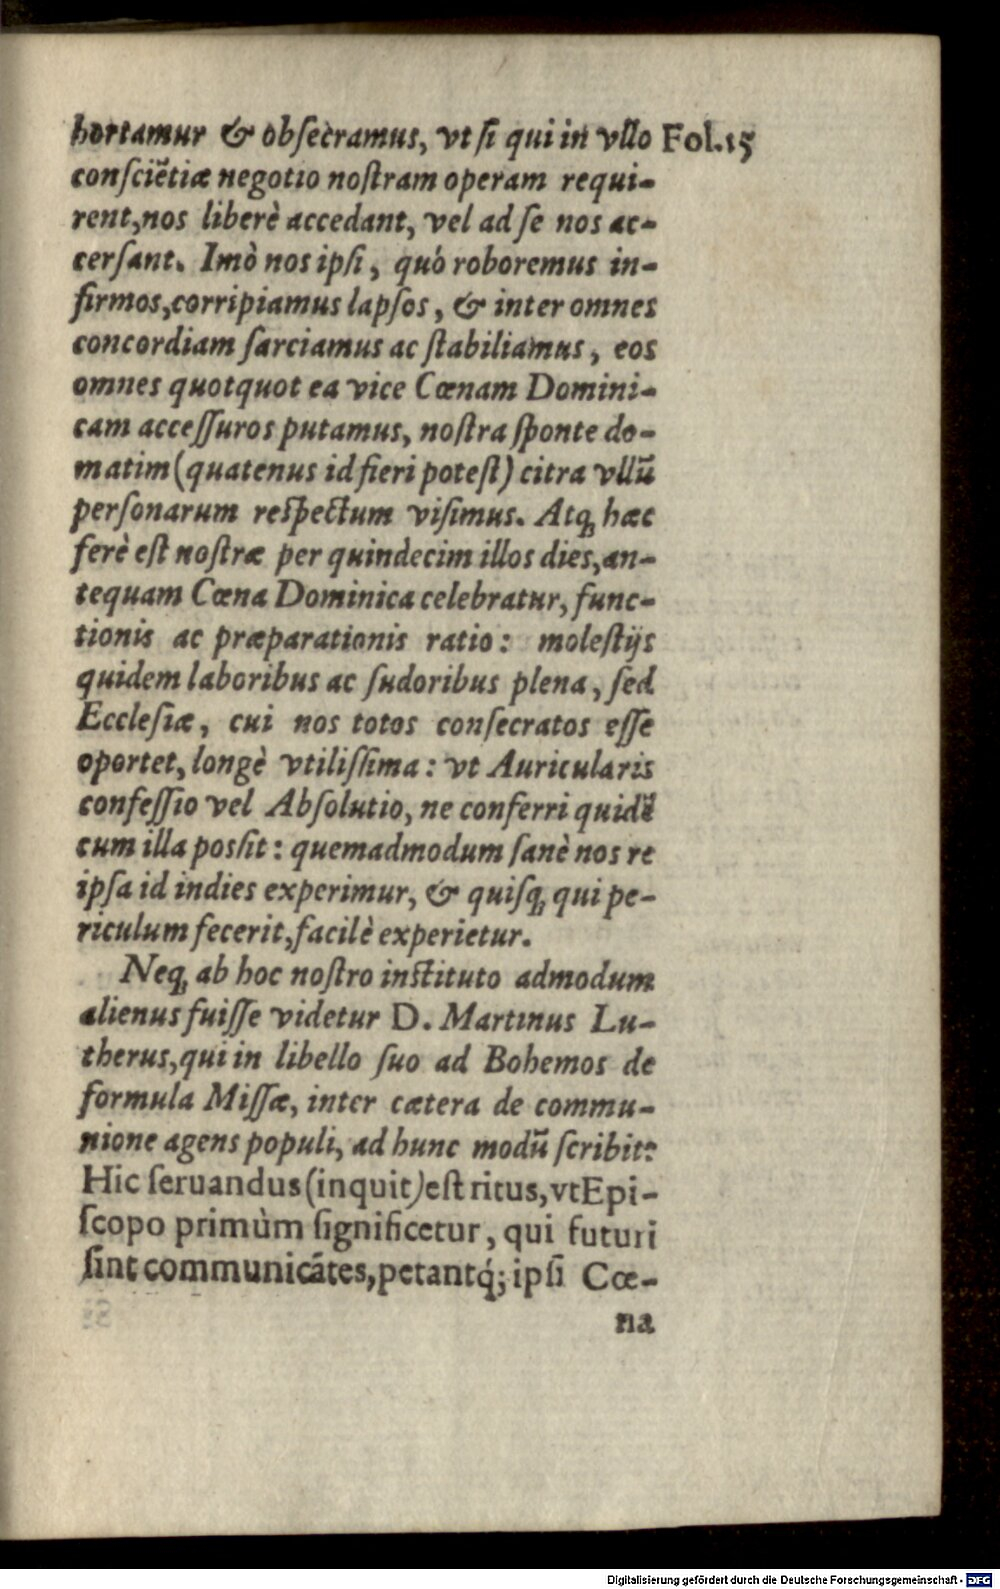 hortamur & obſecramus, vt ſi qui in vllo Fol.15
conſciẽtiæ negotio noſtram operam requi-
rent, nos liberè accedant, vel ad ſe nos ac-
cerſant. Imò nos ipſi, quò roboremus in-
firmos, corripiamus lapſos, & inter omnes
concordiam ſarciamus ac ſtabiliamus, eos
omnes quotquot ea vice Cœnam Domini-
cam acceſſuros putamus, noſtra ſponte do-
matim (quatenus id fieri poteſt) citra vllũ
perſonarum reſpectum viſimus. Atq; hæc
ferè eſt noſtræ per quindecim illos dies, an-
tequam Cœna Dominica celebratur, func-
tionis ac præparationis ratio: moleſtijs
quidem laboribus ac ſudoribus plena, ſed
Eccleſiæ, cui nos totos conſecratos eſſe
oportet, longè vtiliſſima: vt Auricularis
confeſſio vel Abſolutio, ne conferri quidẽ
cum illa poſſit: quemadmodum ſanè nos re
ipſa id indies experimur, & quiſq; qui pe-
riculum fecerit, facilè experietur.
Neq; ab hoc noſtro inſtituto admodum
alienus fuiſſe videtur D. Martinus Lu-
therus, qui in libello ſuo ad Bohemos de
formula Miſſæ, inter cætera de commu-
nione agens populi, ad hunc modũ ſcribit:
Hic ſeruandus (inquit) eſt ritus, vt Epi-
ſcopo primùm ſignificetur, qui futuri
ſint communicãtes, petantq́; ipſi Cœ-
na
Digitalisierung gefördert durch die Deutsche Forschungsgemeinschaft - DFG